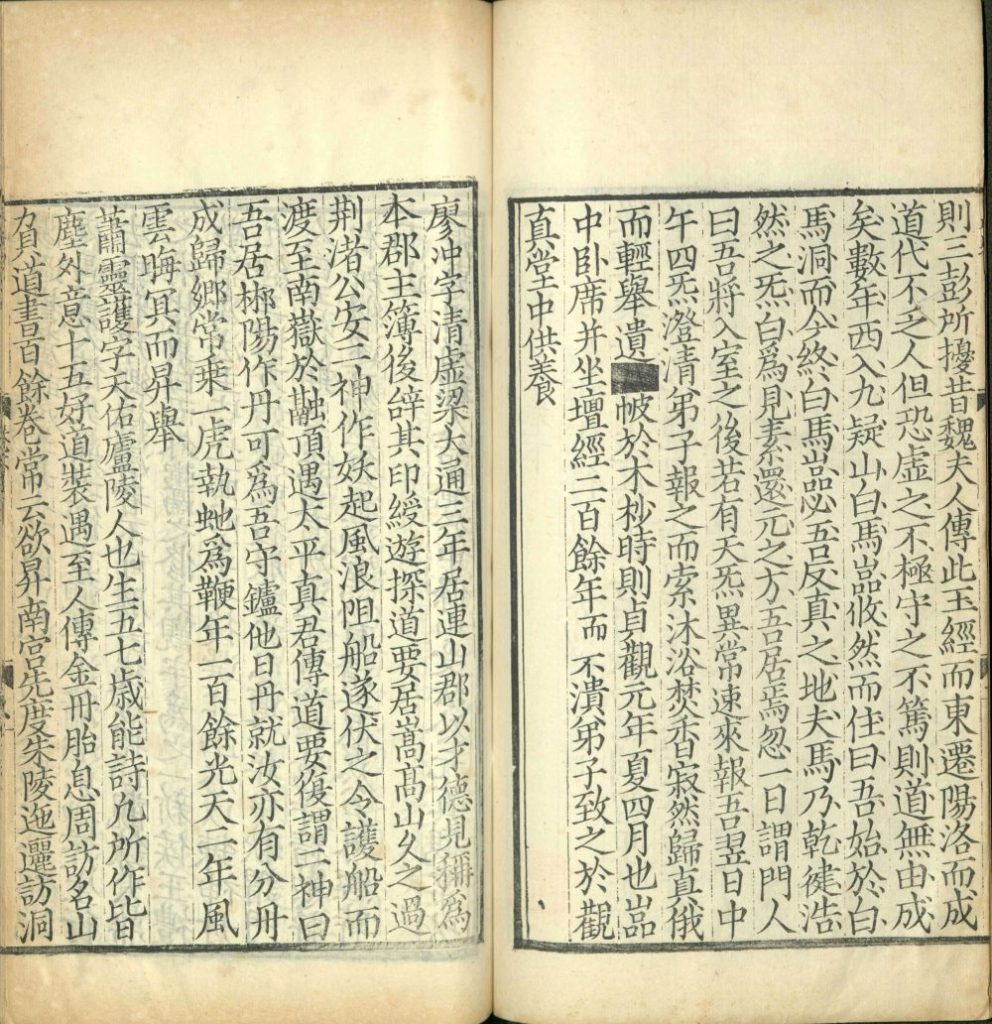 則三彭所擾昔魏夫人傳此玉經而東遷陽洛而成
道代不乏人但恐虛之不極守之不篤則道無由成
矣數年西入九疑山白馬嵓攸然而住曰吾始於白
馬洞而今終白馬嵓必吾反真之地夫馬乃乾健浩
然之炁白爲見素還元之方吾居焉忽一日謂門人
曰吾將入室之後若有天炁異常速來報吾翌日中
午四炁澄清弟子報之而索沐浴焚香寂然歸真俄
而輕舉遺帔於木杪時則貞觀元年夏四月也嵓
中卧席并坐壇經二百餘年而不潰弟子致之於觀
真堂中供養
廖冲字清虛梁大通三年居連山郡以才德見稱爲
本郡主簿後辝其印綬遊探道要居嵩高山久之過
荆渚公安二神作妖起風浪阻船遂伏之令護船而
渡至南嶽於融頂遇太平真君傳道要復謂二神曰
吾居郴陽作丹可爲吾守鑪他日丹就汝亦有分丹
成歸鄉常乗一虎執虵爲鞭年一百餘光天二年風
雲晦冥而昇舉
蕭靈護字天佑廬陵人也生五七歲能詩凡所作皆
塵外意十五好道裝遇至人傳金丹胎息周訪名山
負道書百餘卷常云欲昇南宫先度朱陵迤邐訪洞